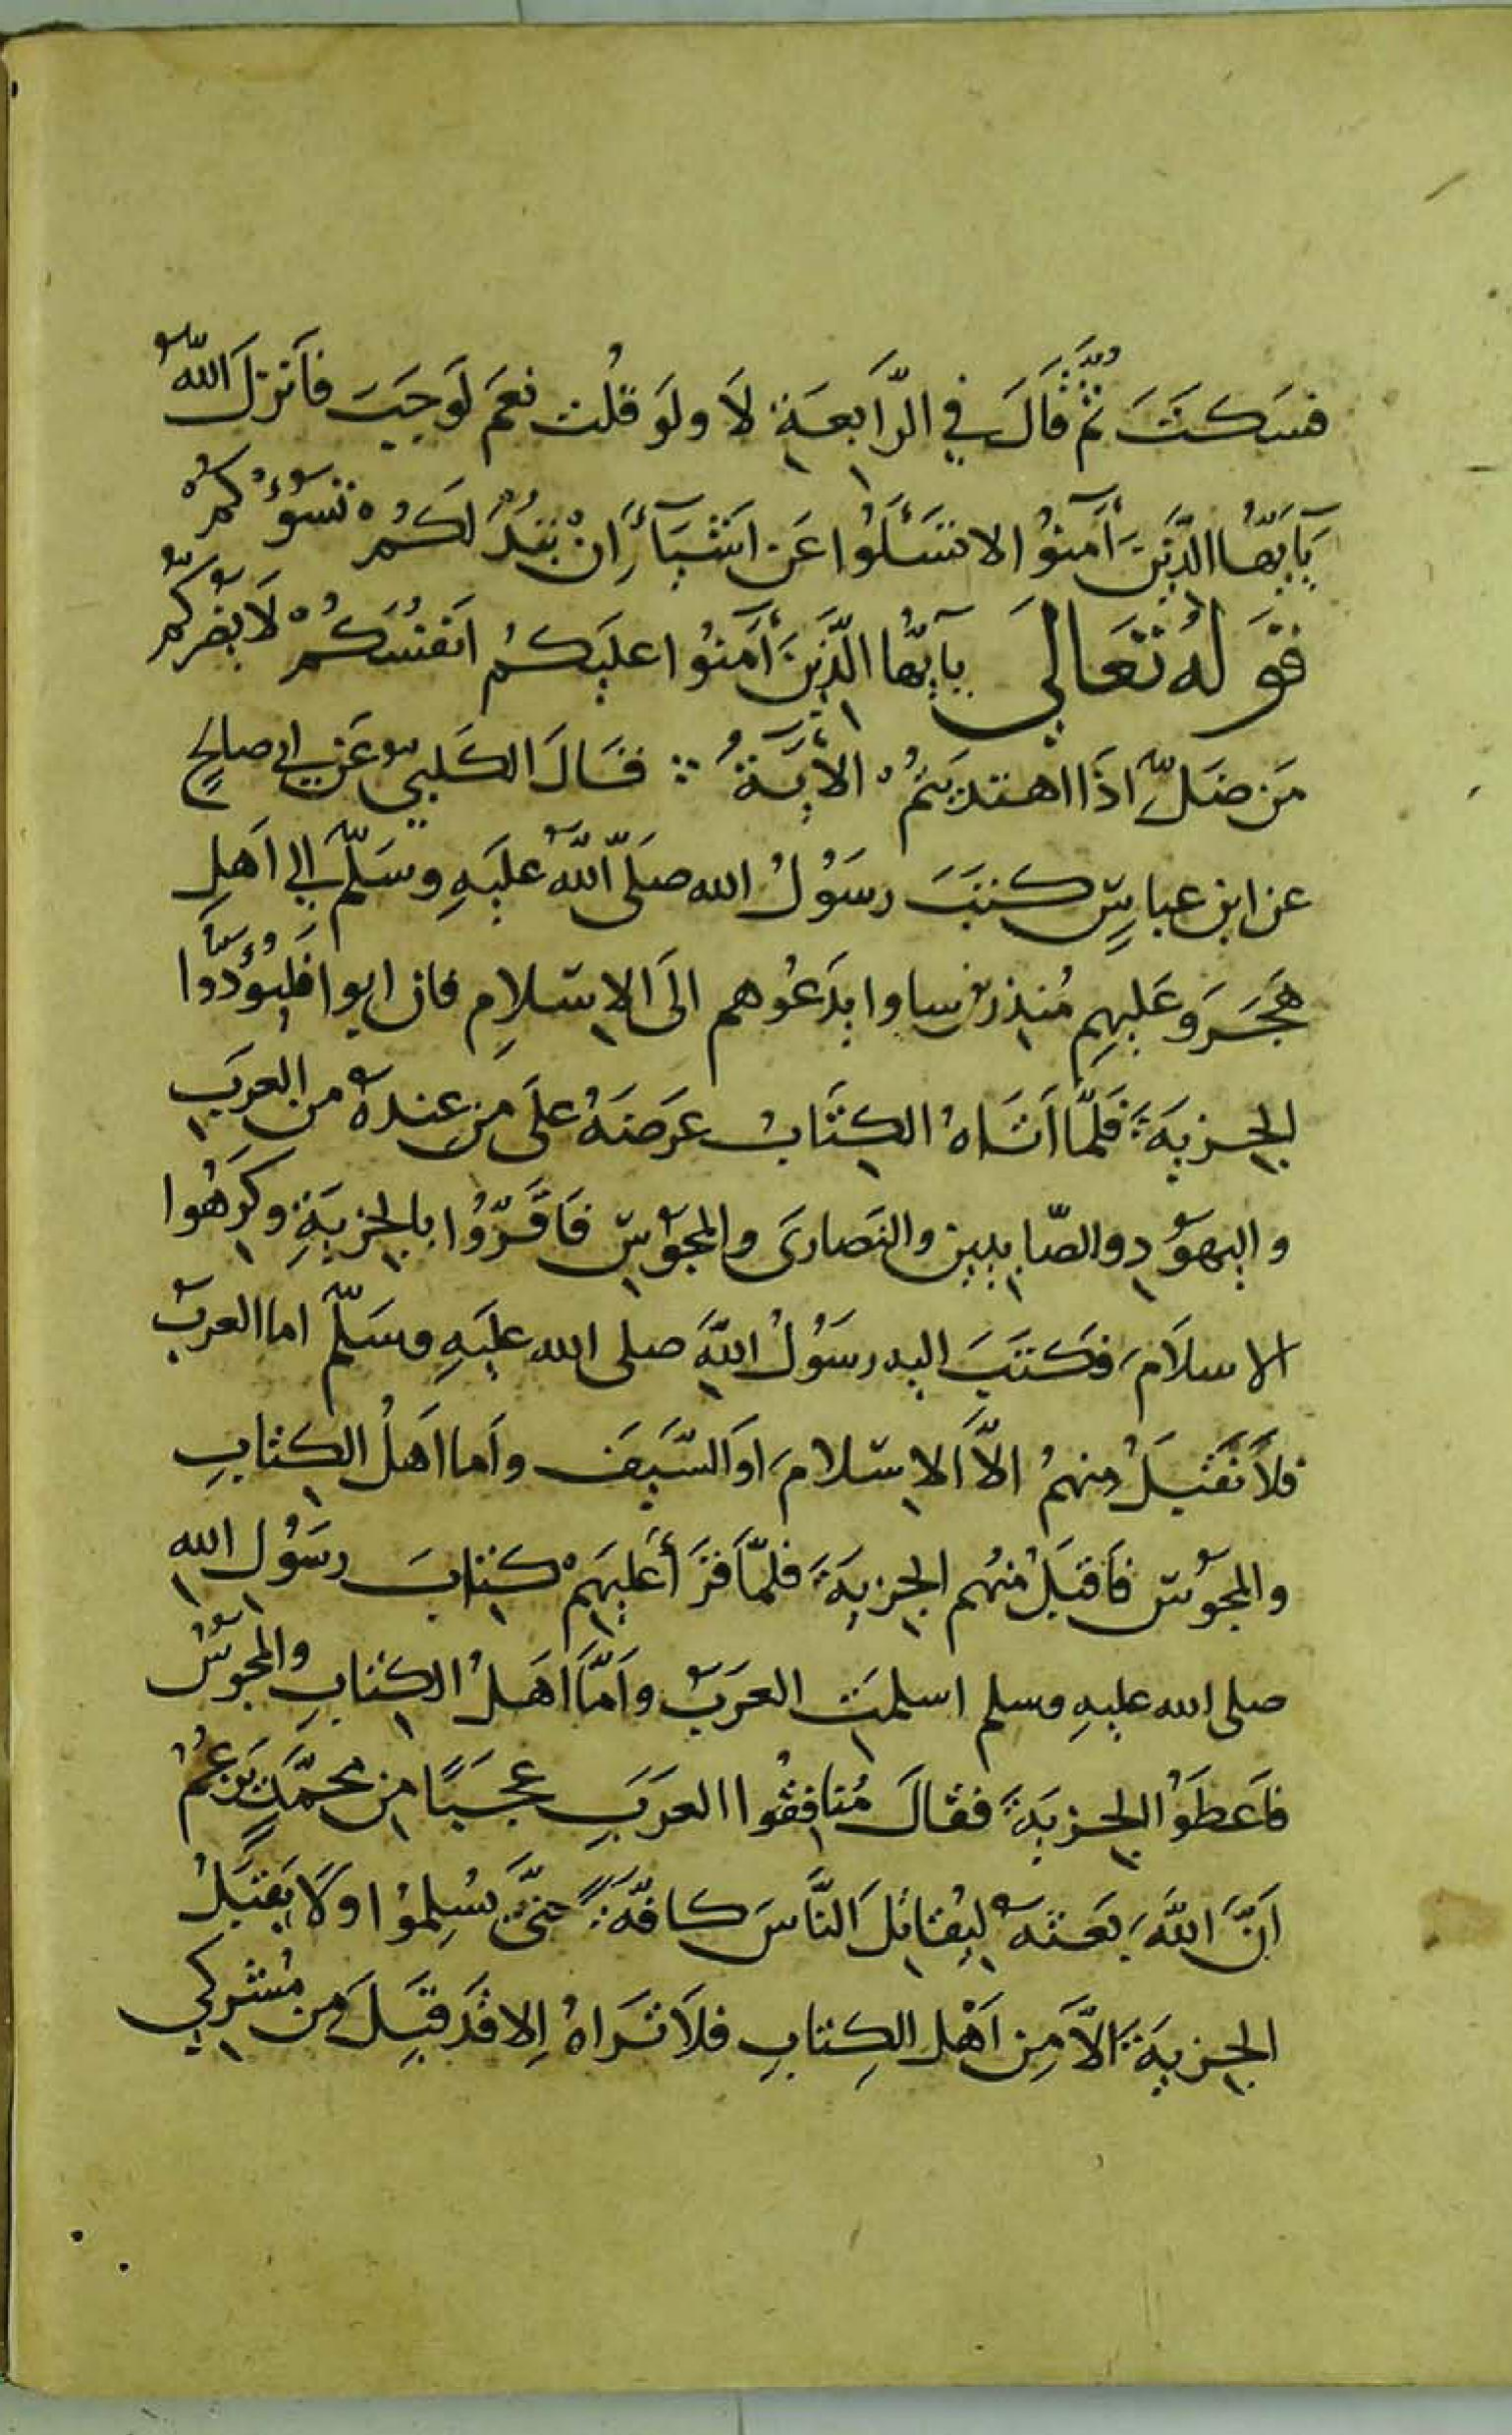 فسَكتَ ثمَّ قالَ في الرَّابعَةِ لَا ولَو قلُت نعَم لَوجَبَت فأنزلَ اللهُ
يَآ يَهُّا الذَّينَ أمنوُا لا تسَئَلوُا عَن اشَيَآءَ اِنْ تبُدَ لَكمُ تَسُؤكُمْ
قوَلهُ تعَالي يآ يهُّا الذَّينَ أمَنوُا عليَكمُ انَفسُكمُ لَا يضرُكمُ
مَن ضَلَّ اذَا اهتدَيتمُ الأيَةُ فقَالَ الكَلبي عَن ابي صالحٍ
عن ابن عباسٍ كتبَ رسَوُلُ الله صَلَّى اللهُ عليَهِ وسَلَّم الي اَهلِ
هَجَرَ وعَليهِم مُنذر بن ساوا يدَعُوهم الَى الاِسلامِ فان ابوا فليؤُدَّوا
الجزيَة فَلمَّا اتَاهُ الكِتَابُ عَرَضَهُ علَى مَن عِندهُ من العرَب
واليهَوُدِ والصَّابيين والنصَارىَ والمجوُسِ فَاقَرُّوُا بالجزيَةِ وكَرهُوا
الاسلاَمَ، فكتَبَ اليه رسَوُلُ اللهَِ صلى الله عليَهِ وسَلَّم اما العرَبُ
فلاَ تَقَبَلُ منهمُ الاَّ الاِسَلامَ، اوَ السَّيَفَ واَما اهَلُ الكِتابِ
والمجوُسِ فاَقبَلُ منهُم الجزيَةَ فلمَّا قرَأ عَليَهمُ كِتابَ رسَوُل الله
صلى الله عليهِ وسلم اسلمتَ العرَبُ واَمَّا اهَلُ الكِتابِ والمجوُسُ
فاَعطَوُا الجزيَةَ فقالَ مُنافِقوُا العرَبِ عجَبًا مِن محمَّدٍ يزَعمُ
اَنَّ اللهَ، بعَثهُ ليُقاتلَ النَّاسَ كافَّةً حتىَّ يسُلِموُا ولَا يقَبَلُ
الجزيَةَ الاَّ مِن اَهْلِ الكِتابِ فلاَ نَرَاهُ اِلا قَد قبَلَ مِن مُشركي